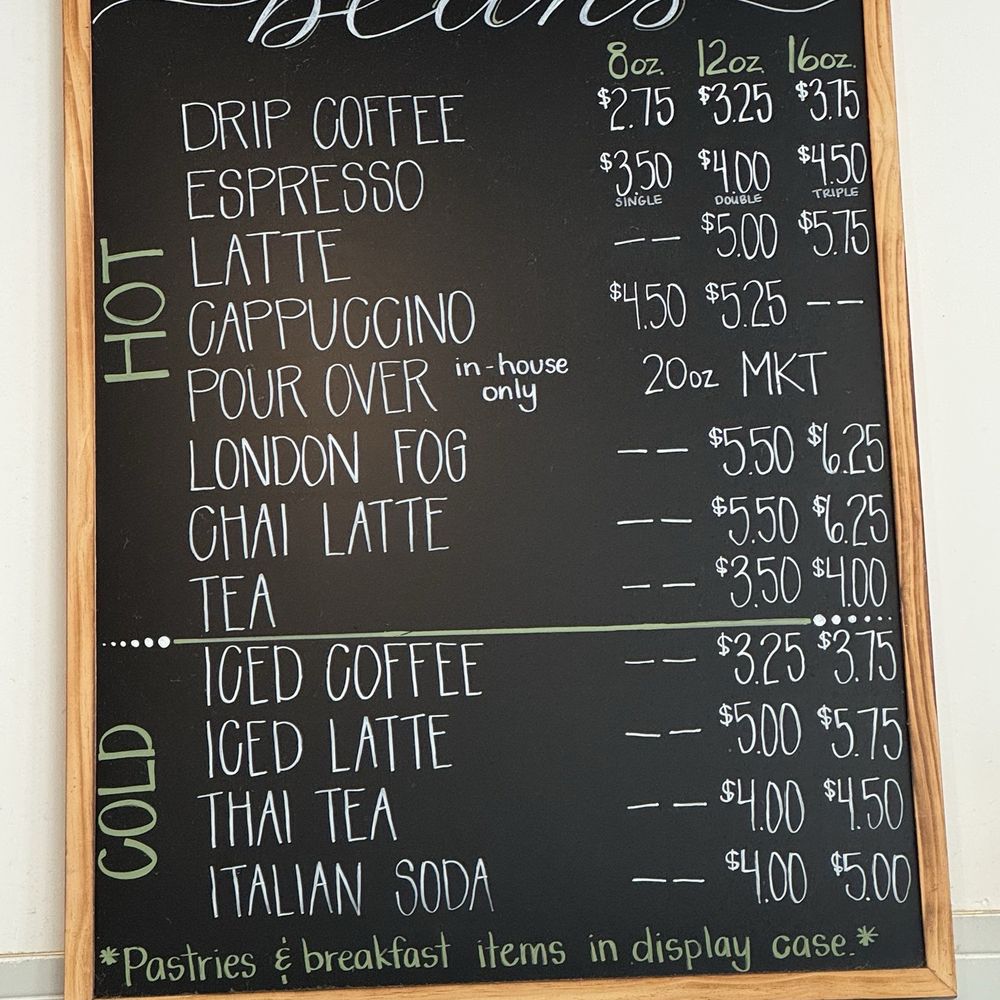 beans
8oz. 12oz. 16oz.
HOT
DRIP COFFEE $2.75 $3.25 $3.75
ESPRESSO $3.50 SINGLE $4.00 DOUBLE $4.50 TRIPLE
LATTE -- $5.00 $5.75
CAPPUCCINO $4.50 $5.25 --
POUR OVER in-house only 20oz MKT
LONDON FOG -- $5.50 $6.25
CHAI LATTE -- $5.50 $6.25
TEA -- $3.50 $4.00
COLD
ICED COFFEE -- $3.25 $3.75
ICED LATTE -- $5.00 $5.75
THAI TEA -- $4.00 $4.50
ITALIAN SODA -- $4.00 $5.00
*Pastries & breakfast items in display case.*